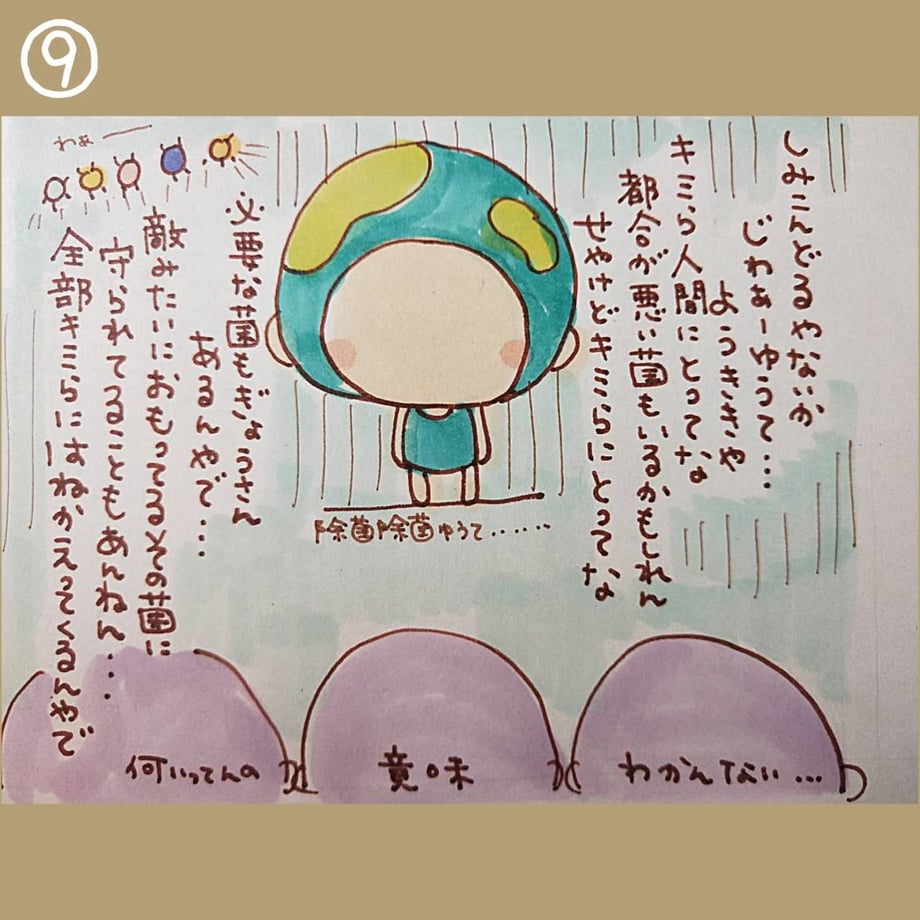 ⑨
しみこんどるやないか
じわぁーゆうて…
ようききや
キミら人間にとってな
都合が悪い菌もいるかもしれん
せやけどキミらにとってな
必要な菌もぎょうさん
あるんやで…
敵みたいにおもってるその菌に
守られてることもあんねん…
全部キミらにはねかえってくるんやで
わぁー
除菌除菌ゆうて……
わかんない…
意味
何いってんの